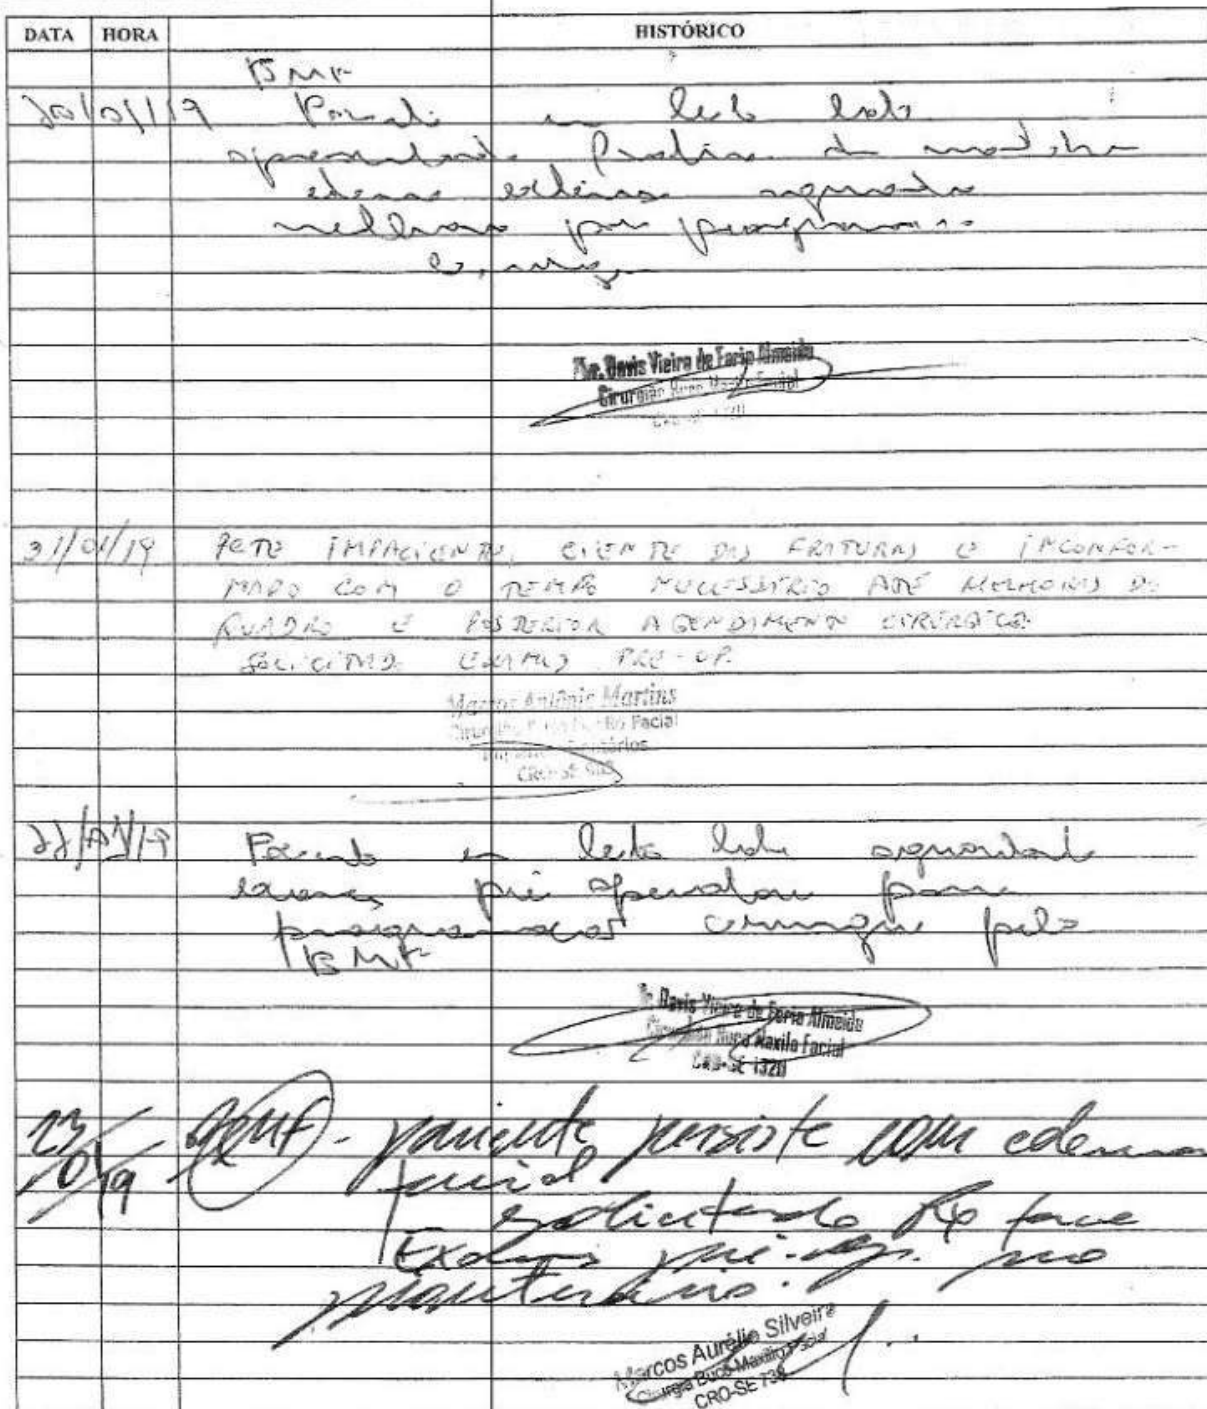 DATA HORA HISTÓRICO
BMF
20/01/19 Paciente em leito
apresentando fratura de
edema extenso aguarda
melhora para programação
Dr. Davis Vieira de Faria Almeida
Cirurgião Buco Maxilo Facial
31/01/19 PCTE IMPACIENTE, CIENTE DAS FRATURAS E INCONFOR-
MADO COM O TEMPO NECESSÁRIO ATÉ MELHORAS DO
QUADRO E POSTERIOR AGENDAMENTO CIRÚRGICO.
SOLICITADO EXAMES PRÉ-OP.
Marcos Antônio Martins
Facial
CRO-SE
22/01/19 Paciente em leito aguardando
exames pré operatórios para
programação cirúrgica pela
BMF
Dr. Davis Vieira de Faria Almeida
Cirurgião Buco Maxilo Facial
CRO-SE 1320
23/01/19 BMF - paciente persiste com edema
facial
solicitando Rx face
Exames pré-op. no
prontuário.
Marcos Aurélio Silveira
Cirurgia Buco-Maxilo-Facial
CRO-SE